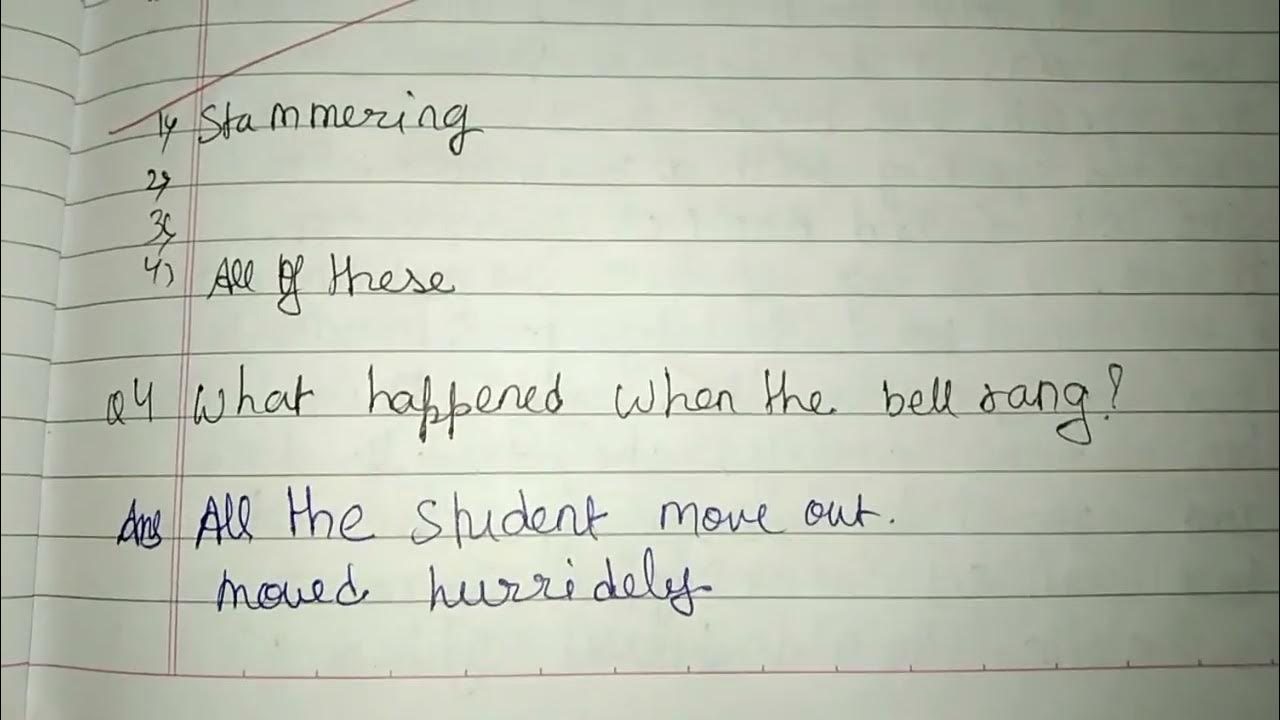 1) Stammering
2)
3)
4) All of these
Q4 What happened when the bell rang?
Ans All the student move out.
moved hurridely